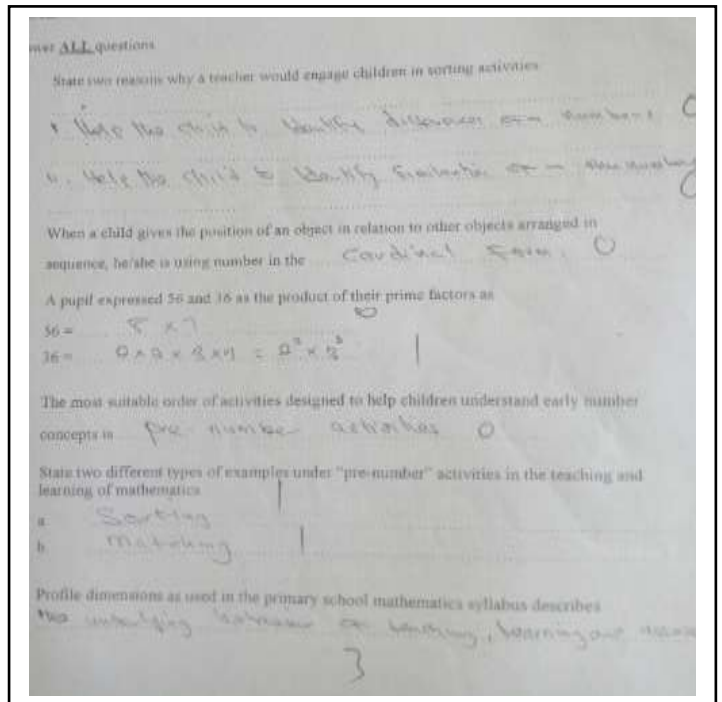 ALL questions
State two reasons why a teacher would engage children in sorting activities
Help the child to Identify differences numbers 0
Help the child to Identify Similarities
When a child gives the position of an object in relation to other objects arranged in
sequence, he/she is using number in the Cardinal Form. 0
A pupil expressed 56 and 36 as the product of their prime factors as
56 = 8 x 7
36 =
The most suitable order of activities designed to help children understand early number
concepts is pre-number activities 0
State two different types of examples under "pre-number" activities in the teaching and
learning of mathematics
a Sorting
b matching
Profile dimensions as used in the primary school mathematics syllabus describes
the underlying of teaching, learning and
3